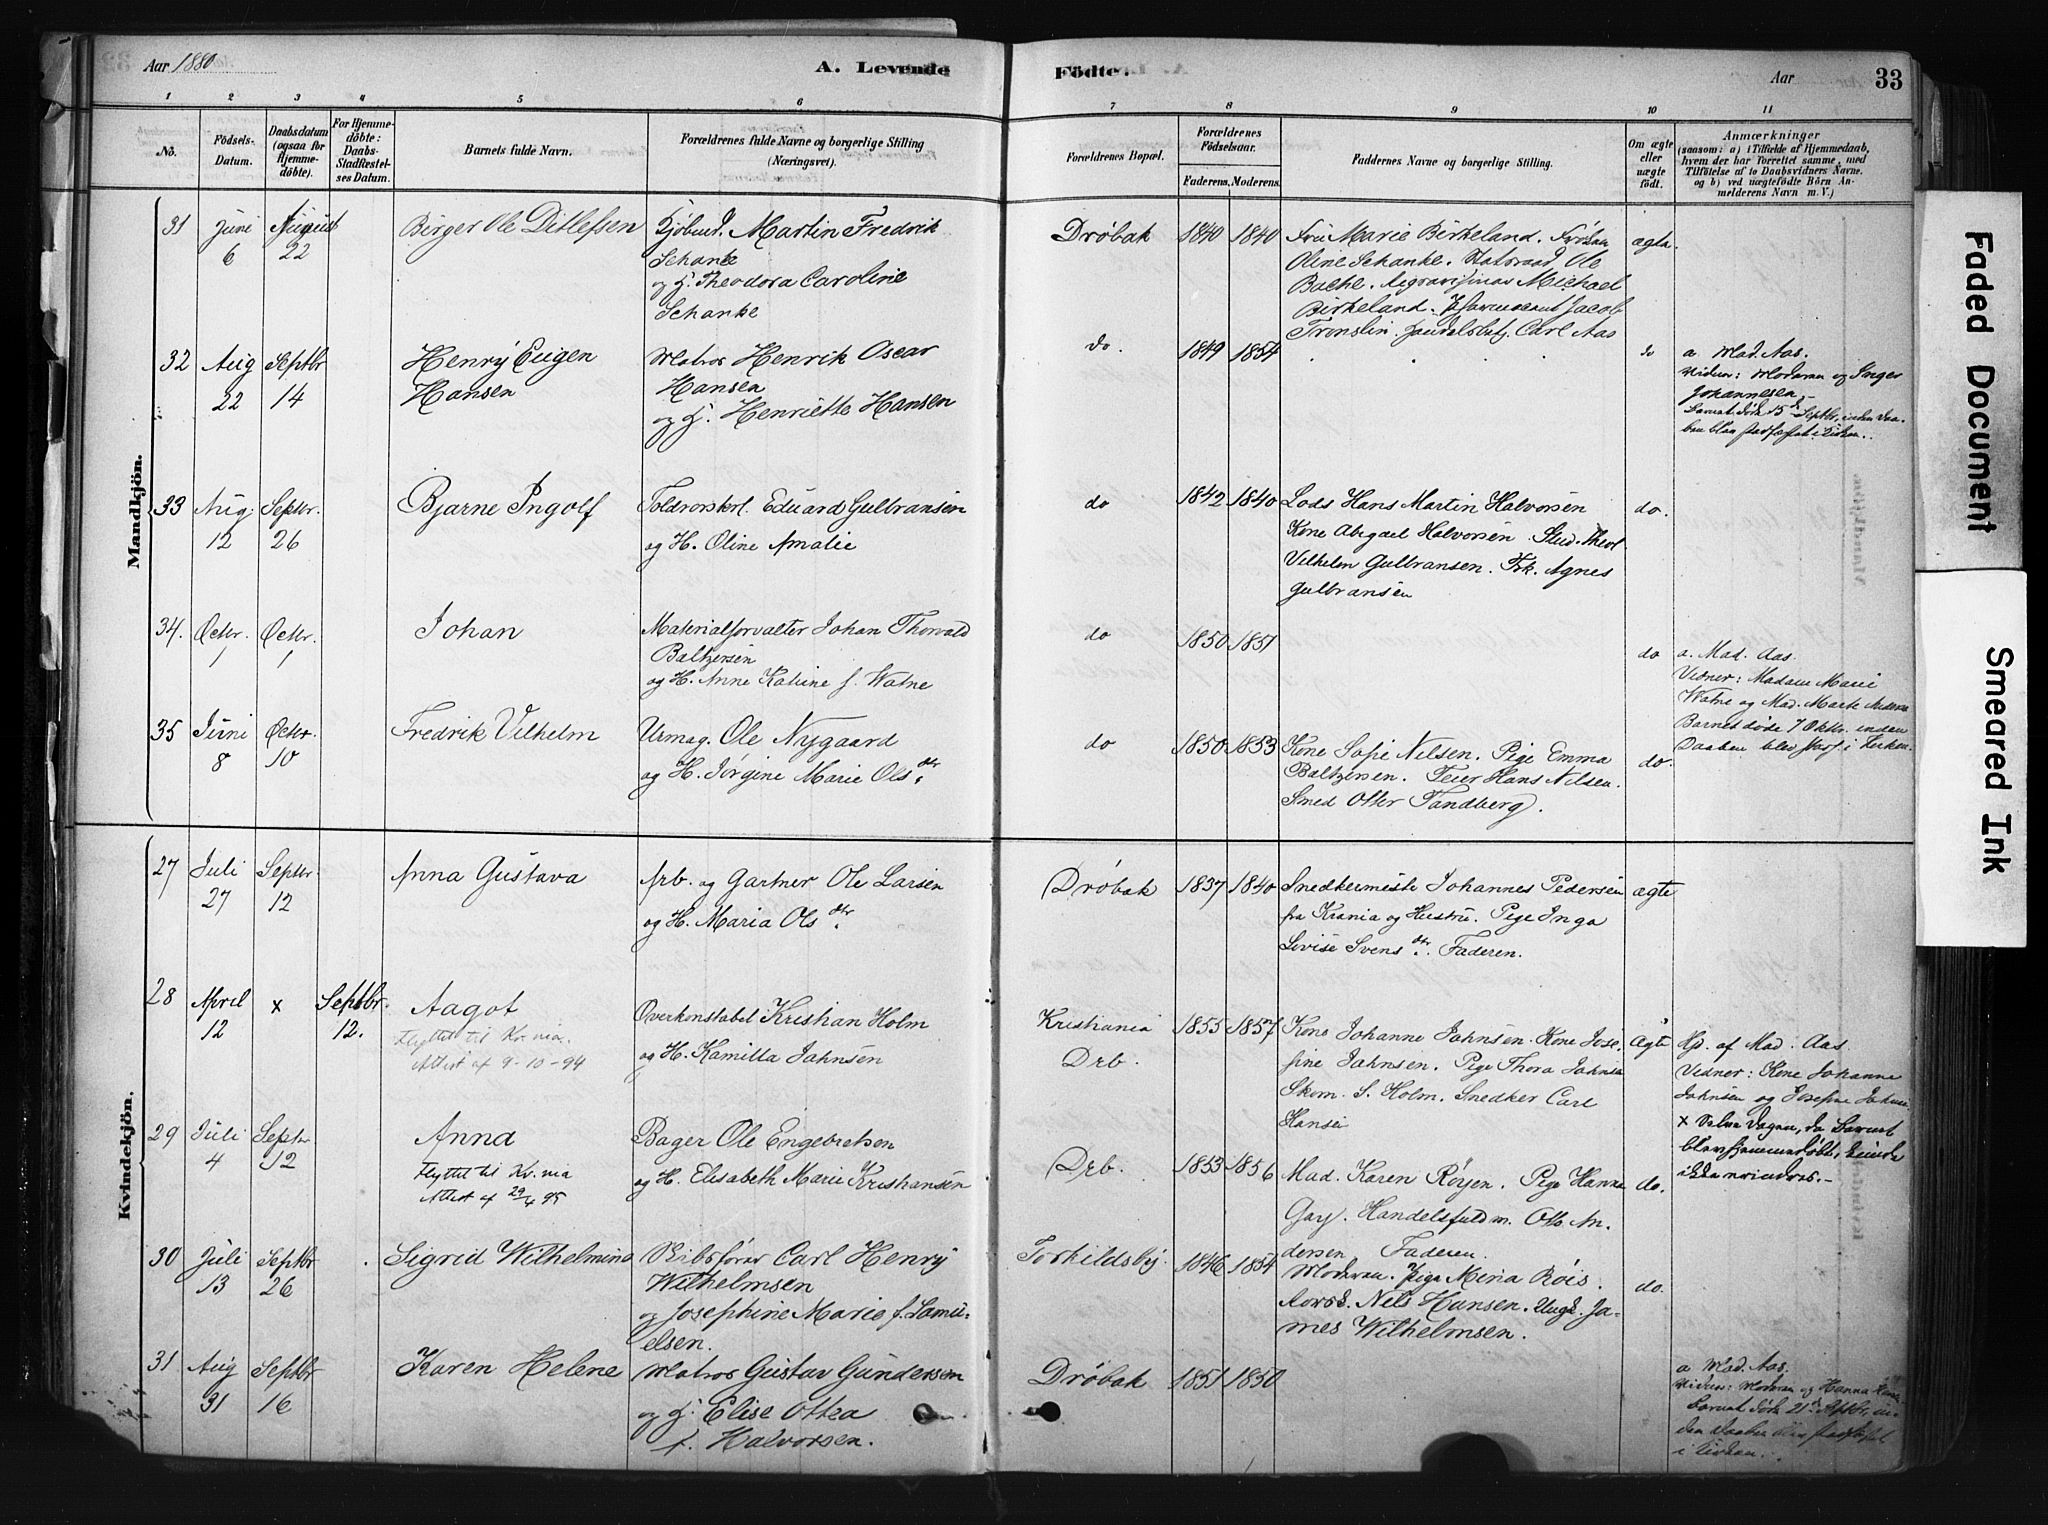 Aar 1880
A. Levende
Födte.
Aar
33
1 2 3 4 5 6 7 8 9 10 11
No.
Födsels-
Datum.
Daabsdatum
(ogsaa for
Hjemme-
döbte).
For Hjemme-
döbte:
Daabs-
Stadfæstel-
ses Datum.
Barnets fulde Navn.
Forældrenes fulde Navne og borgerlige Stilling
(Næringsvei).
Forældrenes Bopæl.
Forældrenes
Födselsaar.
Faderens. Moderens.
Faddernes Navne og borgerlige Stilling.
Om ægte
eller
uægte
födt.
Anmærkninger
(saasom: a) i Tilfælde af Hjemmedaab,
hvem der har forrettet samme, med
Tilföielse af to Daabsvidners Navne.
og b) ved uægtefödte Börn An-
melderens Navn m. V.)
Mandkjön.
31
Juni
6
August
22
Birger Ole Ditlefsen
Kjöbmd. Martin Fredrik
Schanke
og H. Theodora Caroline
Schanke
Dröbak
1840 1840
Fru Marie Birkeland. Fröken
Oline Schanke. Statsraad Ole
Bache. Michael
Birkeland. Jacob
Carl Aas
ægte
32
Aug
22
Septbr
14
Henry Eugen
Hansen
Matros Henrik Oscar
Hansen
og H. Henriette Hansen
do.
1849 1854
do
a Mad. Aas.
Vidner: Moderen og Inger
Johannesen
Barnet döde 15de Septbr, inden Daa-
ben blev stadfæstet i Kirken.
33
Aug.
12
Septbr.
26
Bjarne Ingolf
Toldrorskrl. Eduard Gulbransen
og H. Oline Amalie
do
1842 1840
Lods Hans Martin Halvorsen
Kone Abigael Halvorsen. Stud. Theol
Vilhelm Gulbransen. Frk. Agnes
Gulbransen
do.
34.
Octbr.
1
Octbr.
1
Johan
Materialforvalter Johan Thorvald
Baltzersen
og H. Anne Katrine f. Watne
do
1850 1851
do
a. Mad. Aas.
Vidner: Madam Marie
Watne og Mad. Marte
Barnet döde 7 Oktbr. inden
Daaben blev stadf i Kirken.
35
Juni
8
Octbr.
10
Fredrik Vilhelm
Urmag. Ole Nygaard
og H. Jörgine Marie Olsdtr.
do
1850 1853
Kone Sofie Nilsen. Pige Emma
Baltzersen. Feier Hans Nilsen.
Smed Otter Tandberg.
do.
Kvindekjön.
27
Juli
27
Septbr
12
Anna Gustava
Arb. og Gartner Ole Larsen
og H. Maria Olsdtr.
Dröbak
1837 1840
Snedkermester Johannes Pedersen
fra Krania og Hustru. Pige Inga
Lovise Svensdtr. Faderen.
ægte
28
April
12
x
Septbr.
12.
Aagot
Flyttet til Kr.nia.
Attest af 9-10-94
Overkonstabel Kristian Holm
og H. Kamilla Jahnsen
Kristiania
Drb.
1855 1857
Kone Johanne Jahnsen. Kone Jose-
fine Jahnsen. Pige Thora Jahnsen
Skom. S. Holm. Snedker Carl
Hansen
Ægte
Hjd. af Mad. Aas.
Vidner: Kone Johanne
Jahnsen og Josefine Jahnsen.
x Selve Dagen, da Barnet
blev hjemmedöbt, kunde
ikke erindres.-
29
Juli
4
Septbr
12
Anna
Flyttet til Kr.nia
Attest af 29/4 95
Bager Ole Engebretsen
og H. Elisabeth Marie Kristiansen
Drb.
1853 1856
Mad. Karen Röyen. Pige Hanna
Gay. Handelsfuldm. Otto An-
dersen Faderen.
do.
30
Juli
13
Septbr
26
Sigrid Wilhelmine
Skibsförer Carl Henry
Wilhelmsen
og Josephine Marie f. Samu-
elsen.
Torkildsby.
1846 1854
Moderen. Pige Mina Röis.
Nils Hansen. Ungk. Ja-
mes Wilhelmsen.
do.
31
Aug
31
Septbr
16
Karen Helene
Matros Gustav Gundersen
og H. Elise Ottea
f. Halvorsen.
Dröbak
1851 1850
a Mad. Aas.
Vidner: Moderen og Hanna
Barnet döde 21de Septbr, in-
den Daaben blev stadfæstet
i Kirken.
Faded Document
Smeared Ink